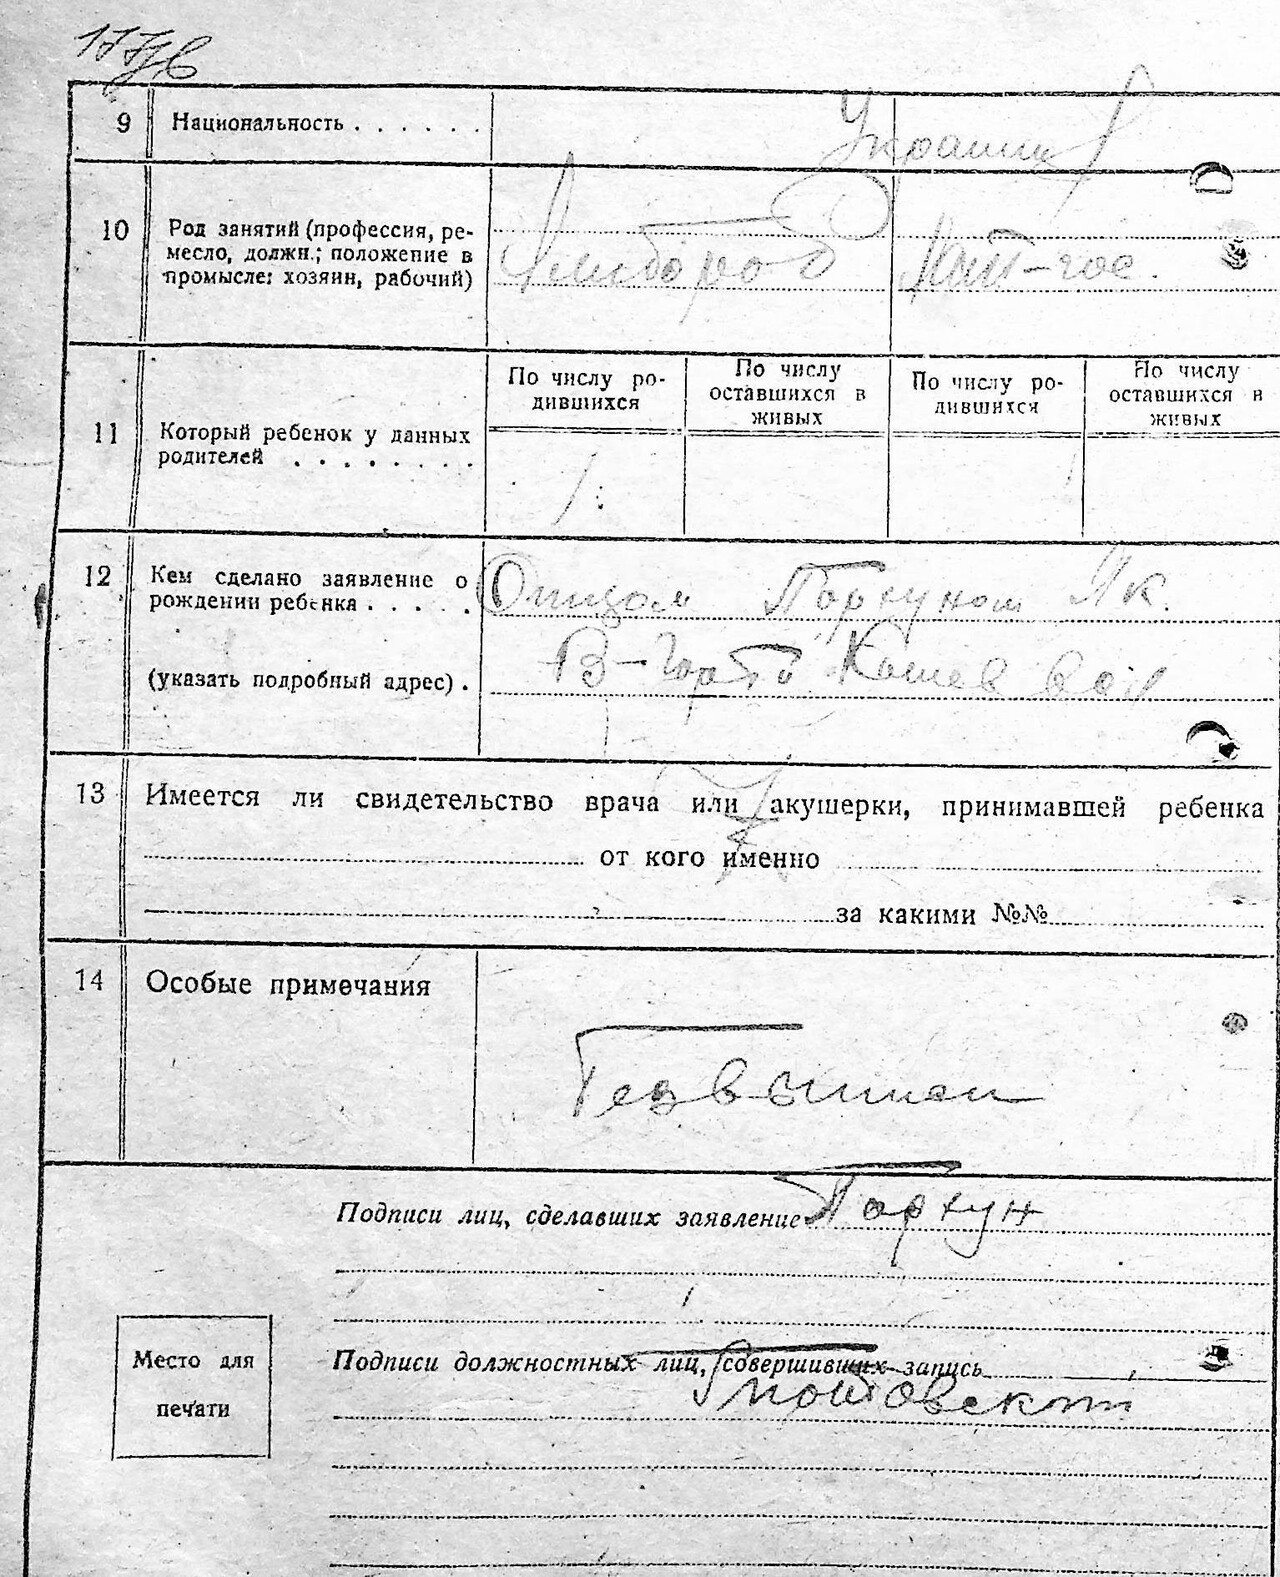 9 Национальность . . . . . .
10 Род занятий (профессия, ре-
месло, должн.; положение в
промысле: хозяин, рабочий)
Хлибороб
11 Который ребенок у данных
родителей . . . . . . . .
По числу ро-
дившихся
По числу
оставшихся в
живых
По числу ро-
дившихся
По числу
оставшихся в
живых
12 Кем сделано заявление о
рождении ребенка . . . . .
Отцом Пархуном Як.
(указать подробный адрес) .
13 Имеется ли свидетельство врача или акушерки, принимавшей ребенка
от кого именно
за какими №№
14 Особые примечания
Подписи лиц, сделавших заявление Пархун
Место для
печати
Подписи должностных лиц, совершивших запись